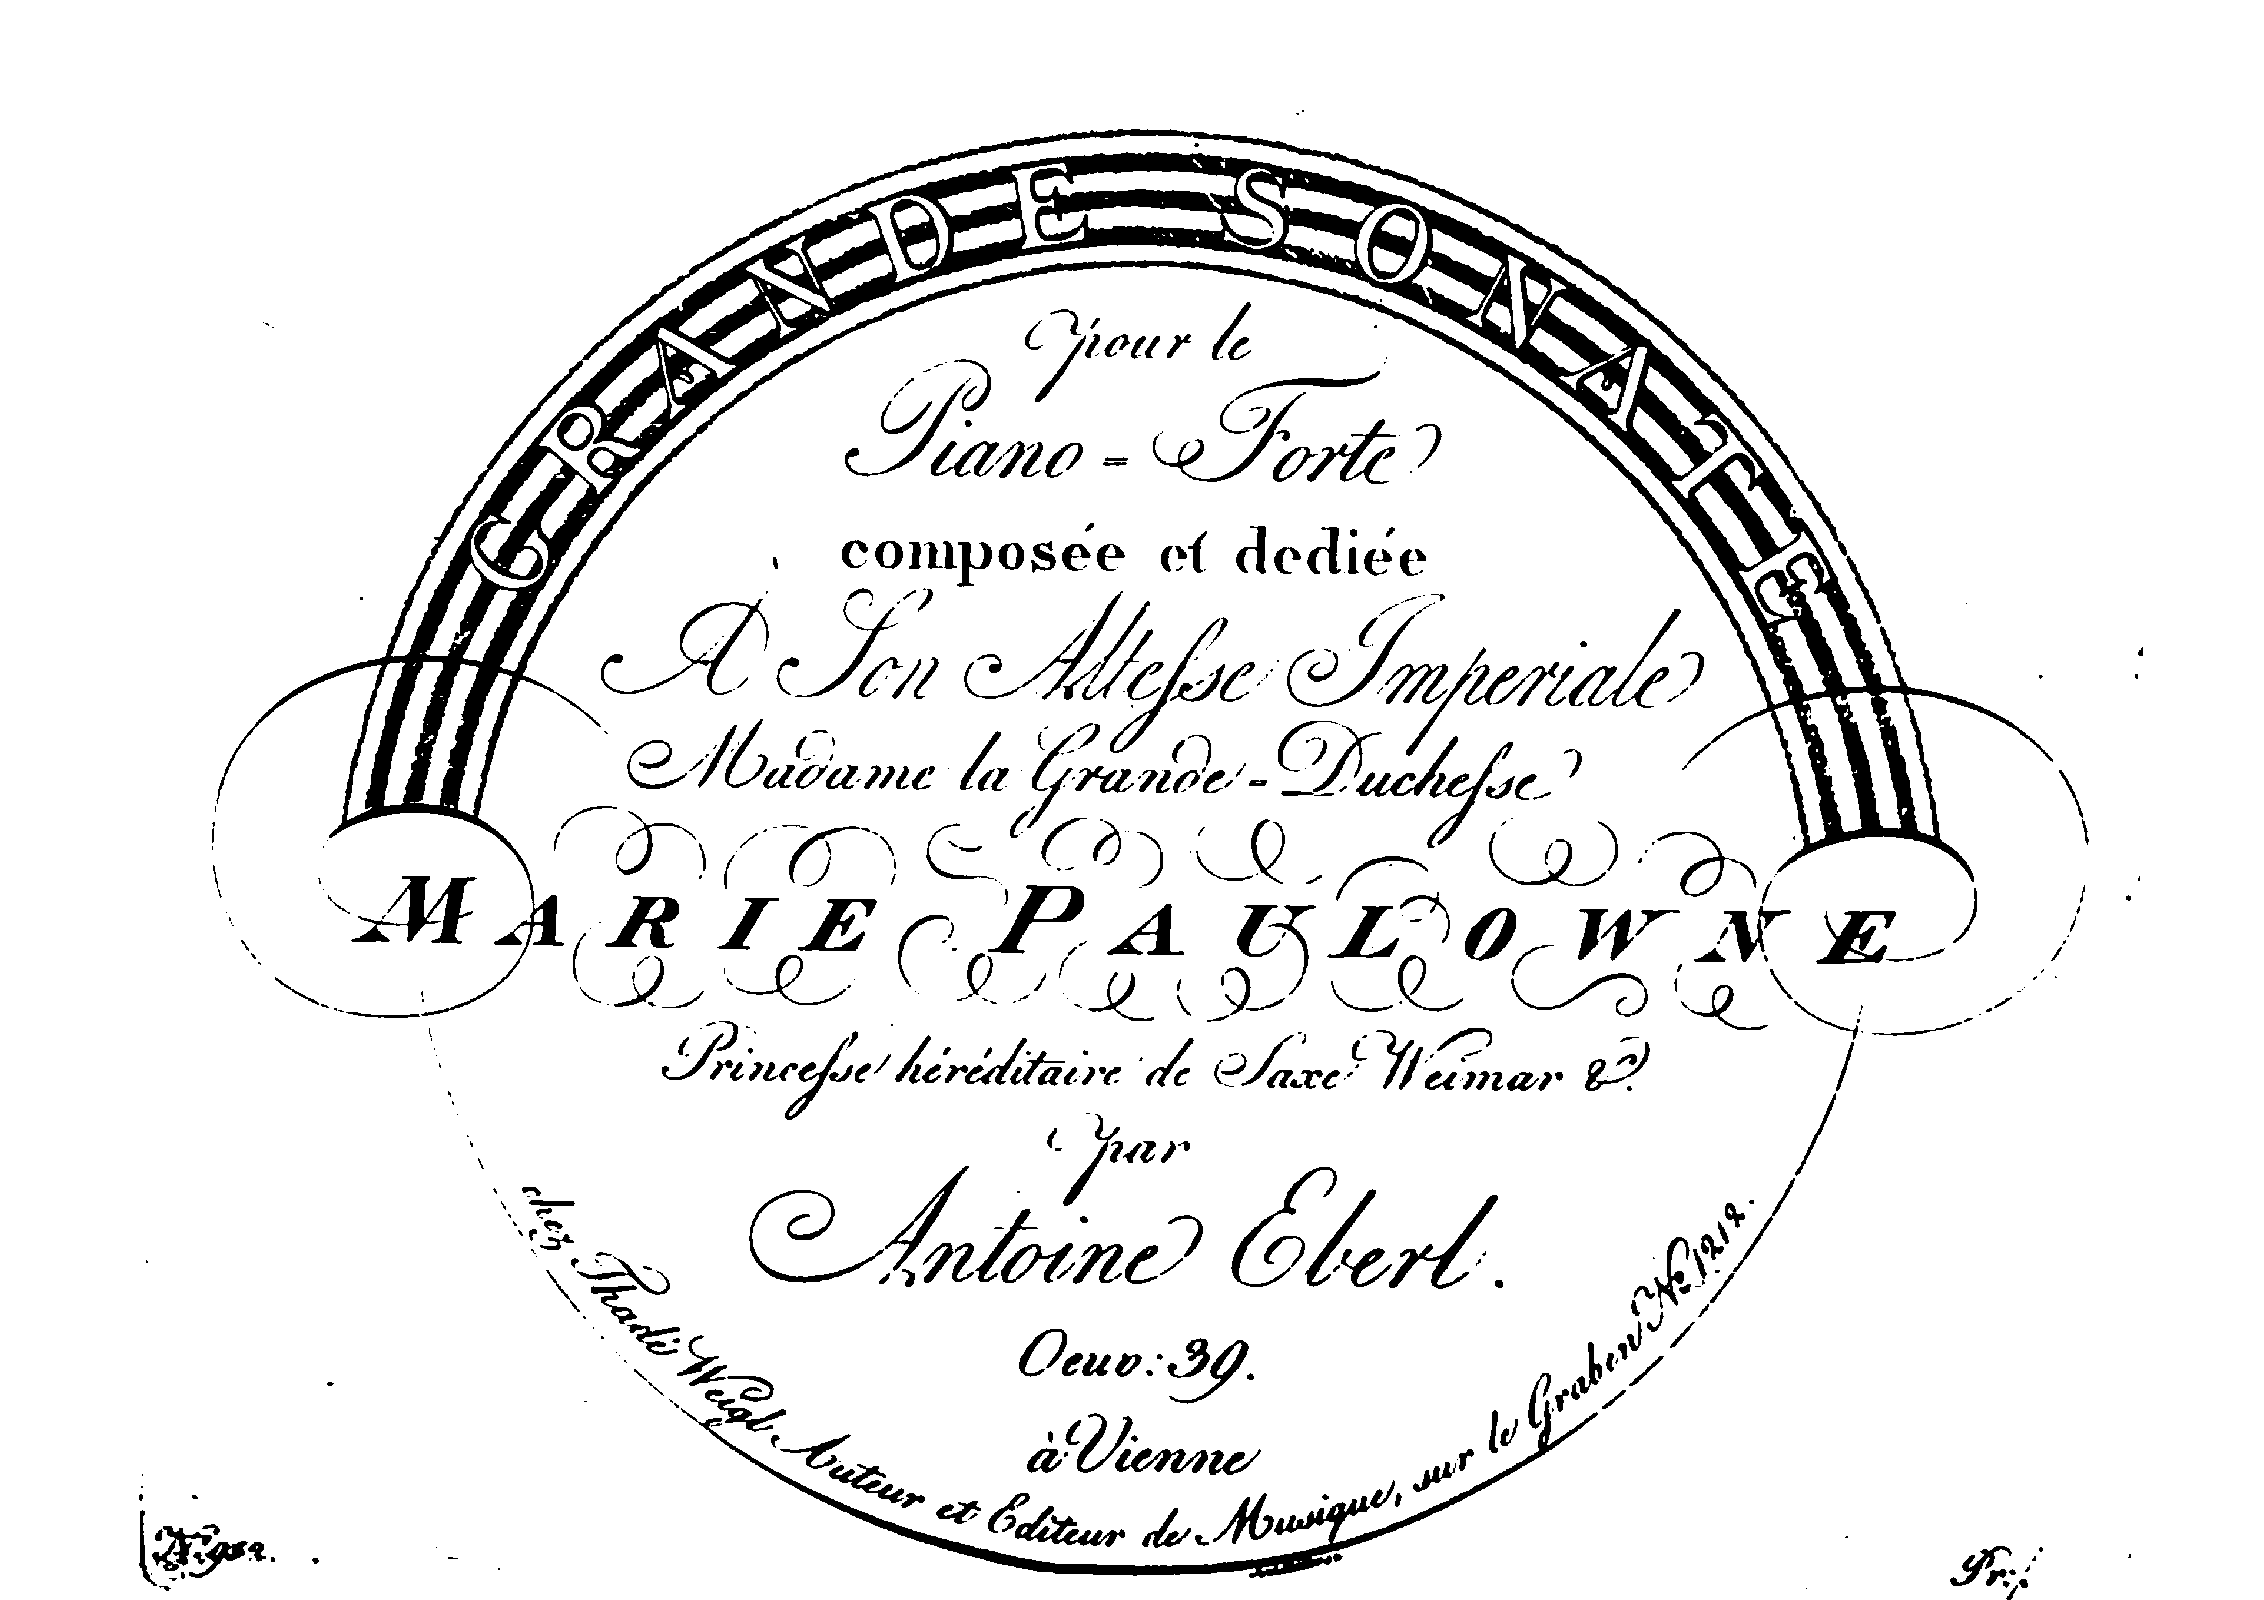 GRANDE SONATE
pour le
Piano=Forte
composée et dediée
A Son Altesse Imperiale
Madame la Grande=Duchesse
MARIE PAULOWNE
Princesse héréditaire de Saxe Weimar &.
par
Antoine Eberl.
Oeuv: 39.
à Vienne
chez Thadé Weigl Auteur et Editeur de Musique, sur le Graben No 1212.
Pr: